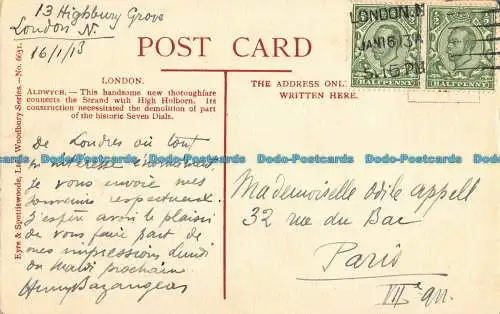 13 Highbury Grove
London N.
16/1/13
POST CARD
LONDON. N
JA 16 13
.15 PM
HALFPENNY
HALFPENNY
Eyre & Spottiswoode, Ld. Woodbury Series.—No. 6651.
LONDON.
ALDWYCH.—This handsome new thoroughfare
connects the Strand with High Holborn. Its
construction necessitated the demolition of part
of the historic Seven Dials.
THE ADDRESS ONLY
WRITTEN HERE.
De Londres où tout
m'intéresse
je vous envoie mes
souvenirs respectueux.
J'espère avoir le plaisir
de vous faire part de
mes impressions Lundi
ou Mardi prochain
Henry
Mademoiselle Odile Appell
32 rue du Bac
Paris
VIIe arr.
Dodo-Postcards Dodo-Postcards Dodo-Postcards Dodo-Postcards